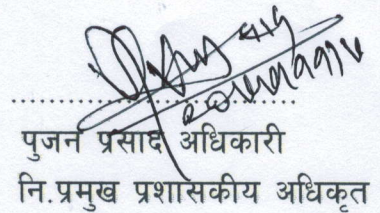 पुजन प्रसाद अधिकारी
नि.प्रमुख प्रशासकीय अधिकृत